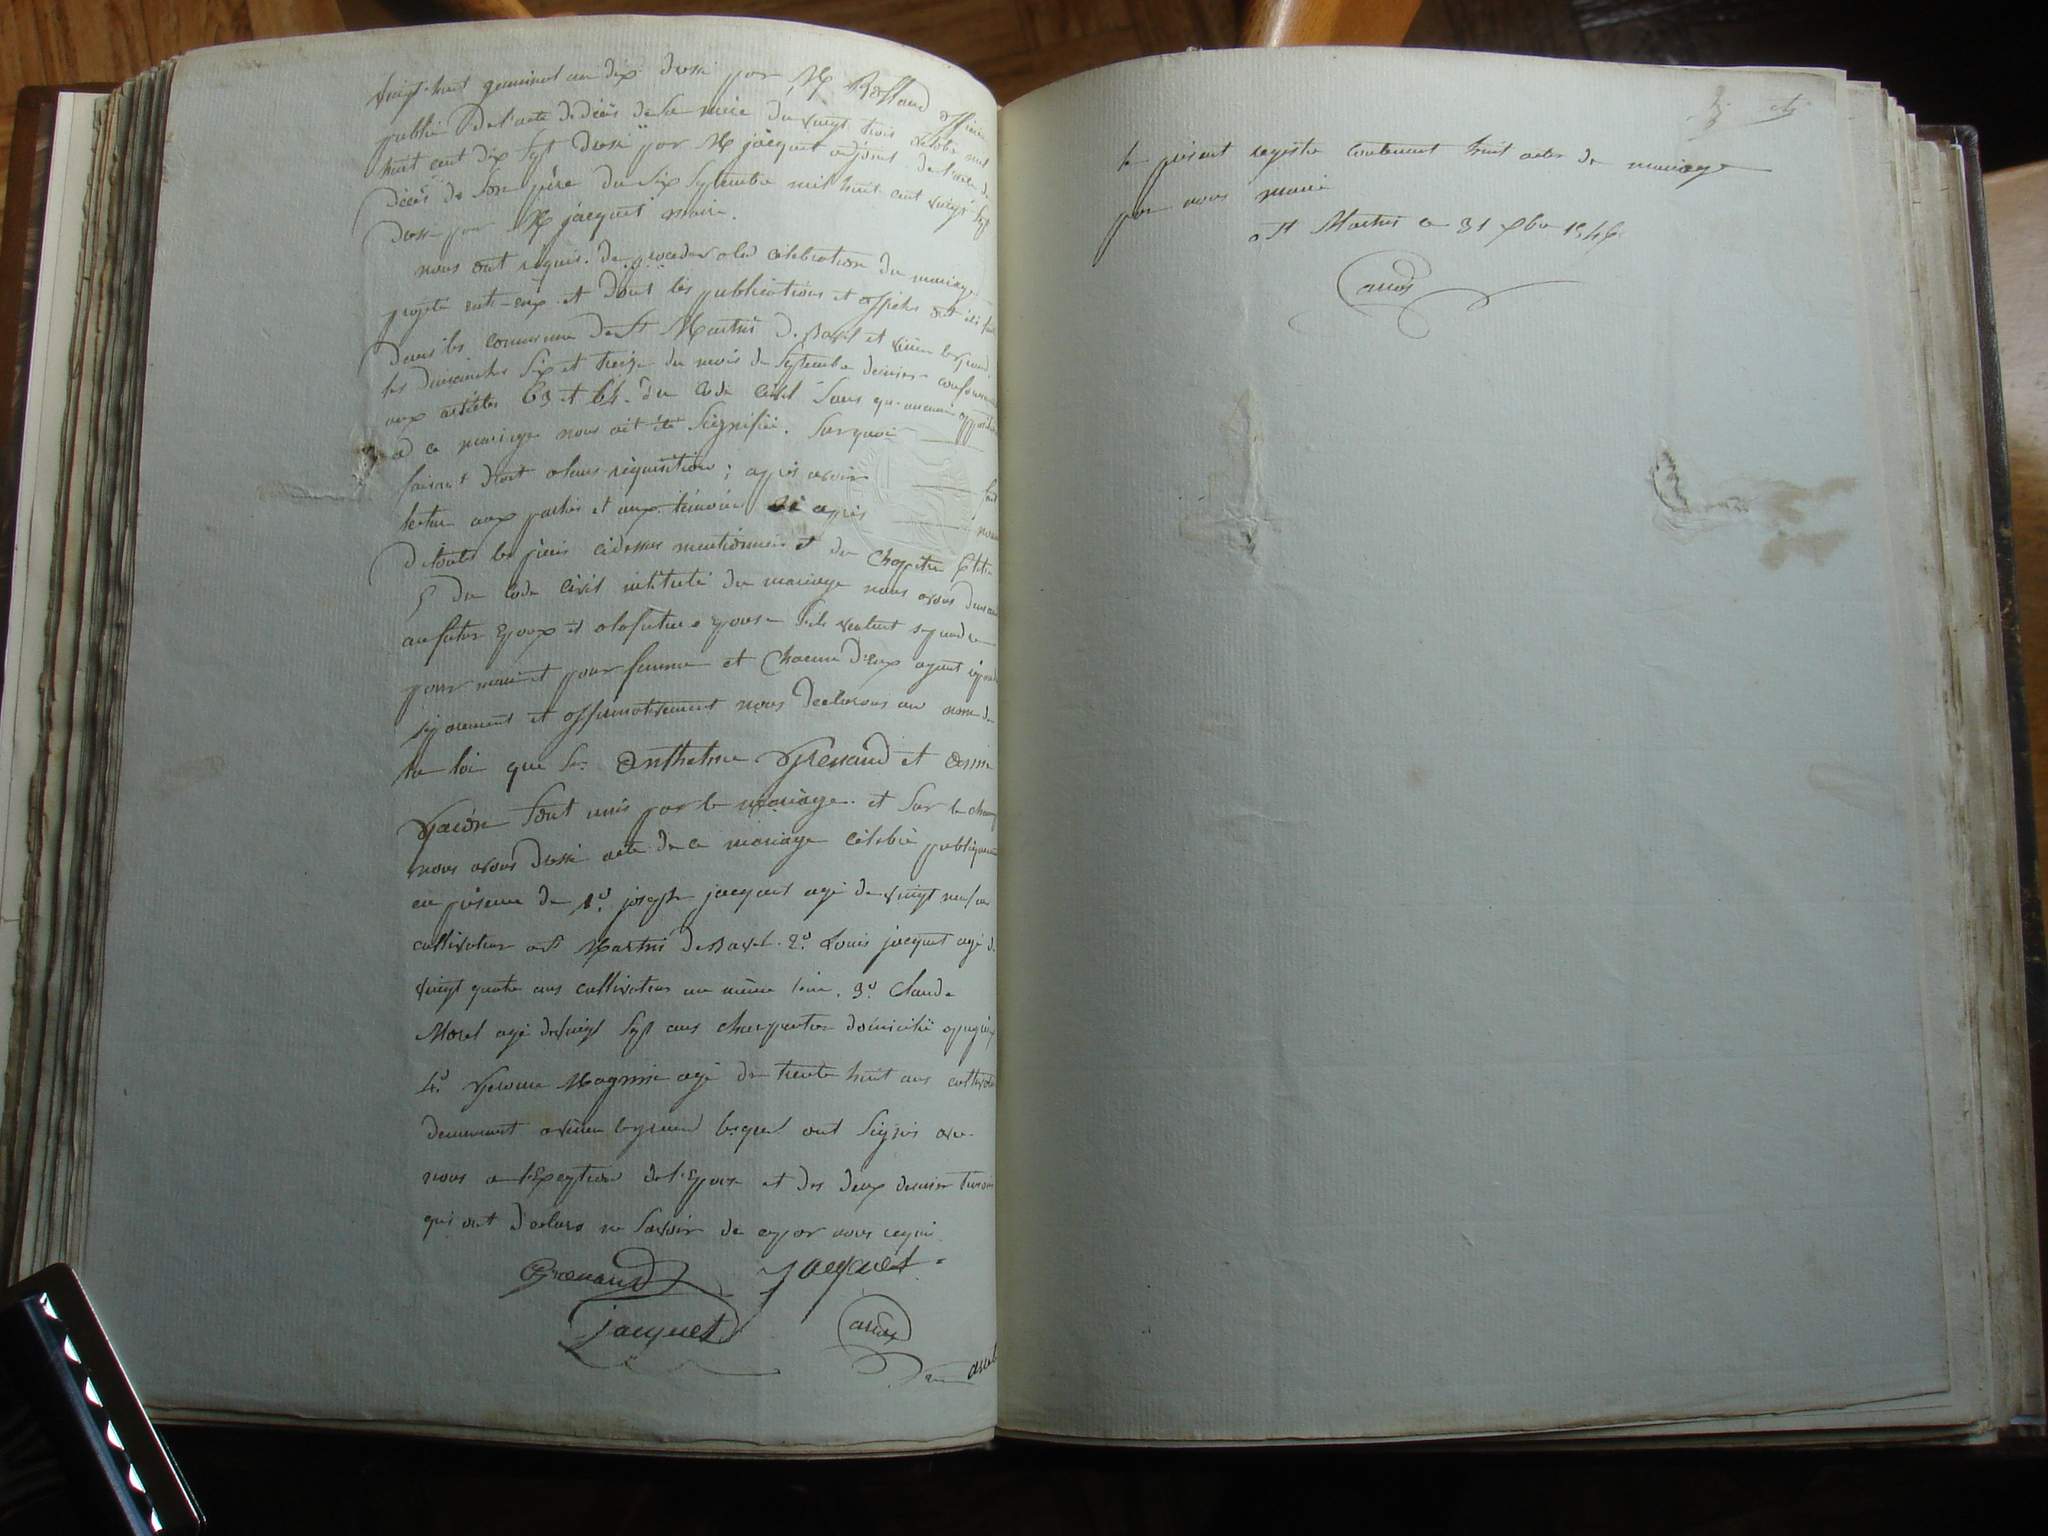 vingt huit germinal an dix dressé par M Rolland officier
public De l'acte de décès de sa mère du vingt trois octobre mil
huit cent dix sept dressé par M jacquet adjoint de l'acte de
décès de son père du six septembre mil huit cent vingt sept
dressé par M jacquet maire.
nous ont requis de proceder a la célébration du mariage
projeté entr-eux et dont les publications et affiches ont été faites
dans les commune de St Martin de Bavel et virieu le grand
les dimanches six et treize du mois de septembre dernier conformément
aux articles 63 et 64 du code civil sans qu'aucune opposition
a ce mariage nous ait été signifiée. sur quoi
faisant droit a leur requisition; après avoir fait
lecture aux parties et aux témoins ci après nommés
de toutes les pièces cidessus mentionnées et du chapitre 6 titre
5 du code civil intitulé du mariage nous avons demandé
au futur epoux et a la future epouse s'ils veulent se prendre
pour mari et pour femme et chacun d'eux ayant répondu
séparement et affirmativement nous declarons au nom de
la loi que les anthelme Grenaud et
sont unis par le mariage. et sur le champ
nous avons dressé acte de ce mariage célébré publiquement
en présence de 1° joseph jacquet agé de vingt neuf ans
cultivateur a St Martin de Bavel. 2° Louis jacquet agé de
vingt quatre ans cultivateur au même lieu. 3° Claude
Morel agé de vingt sept ans charpentier domicilié a pugieu
4° Jerome Magnin agé de trente huit ans cultivateur
demeurant a virieu le grand lesquel ont signés avec
nous a l'exception de l'epouse et des deux dernier temoins
qui ont déclaré ne savoir de ce par nous requis
Grenaud jacquet
jacquet
le présent registre contenant huit actes de mariage
par nous maire
a St Martin ce 31 xbre 1846